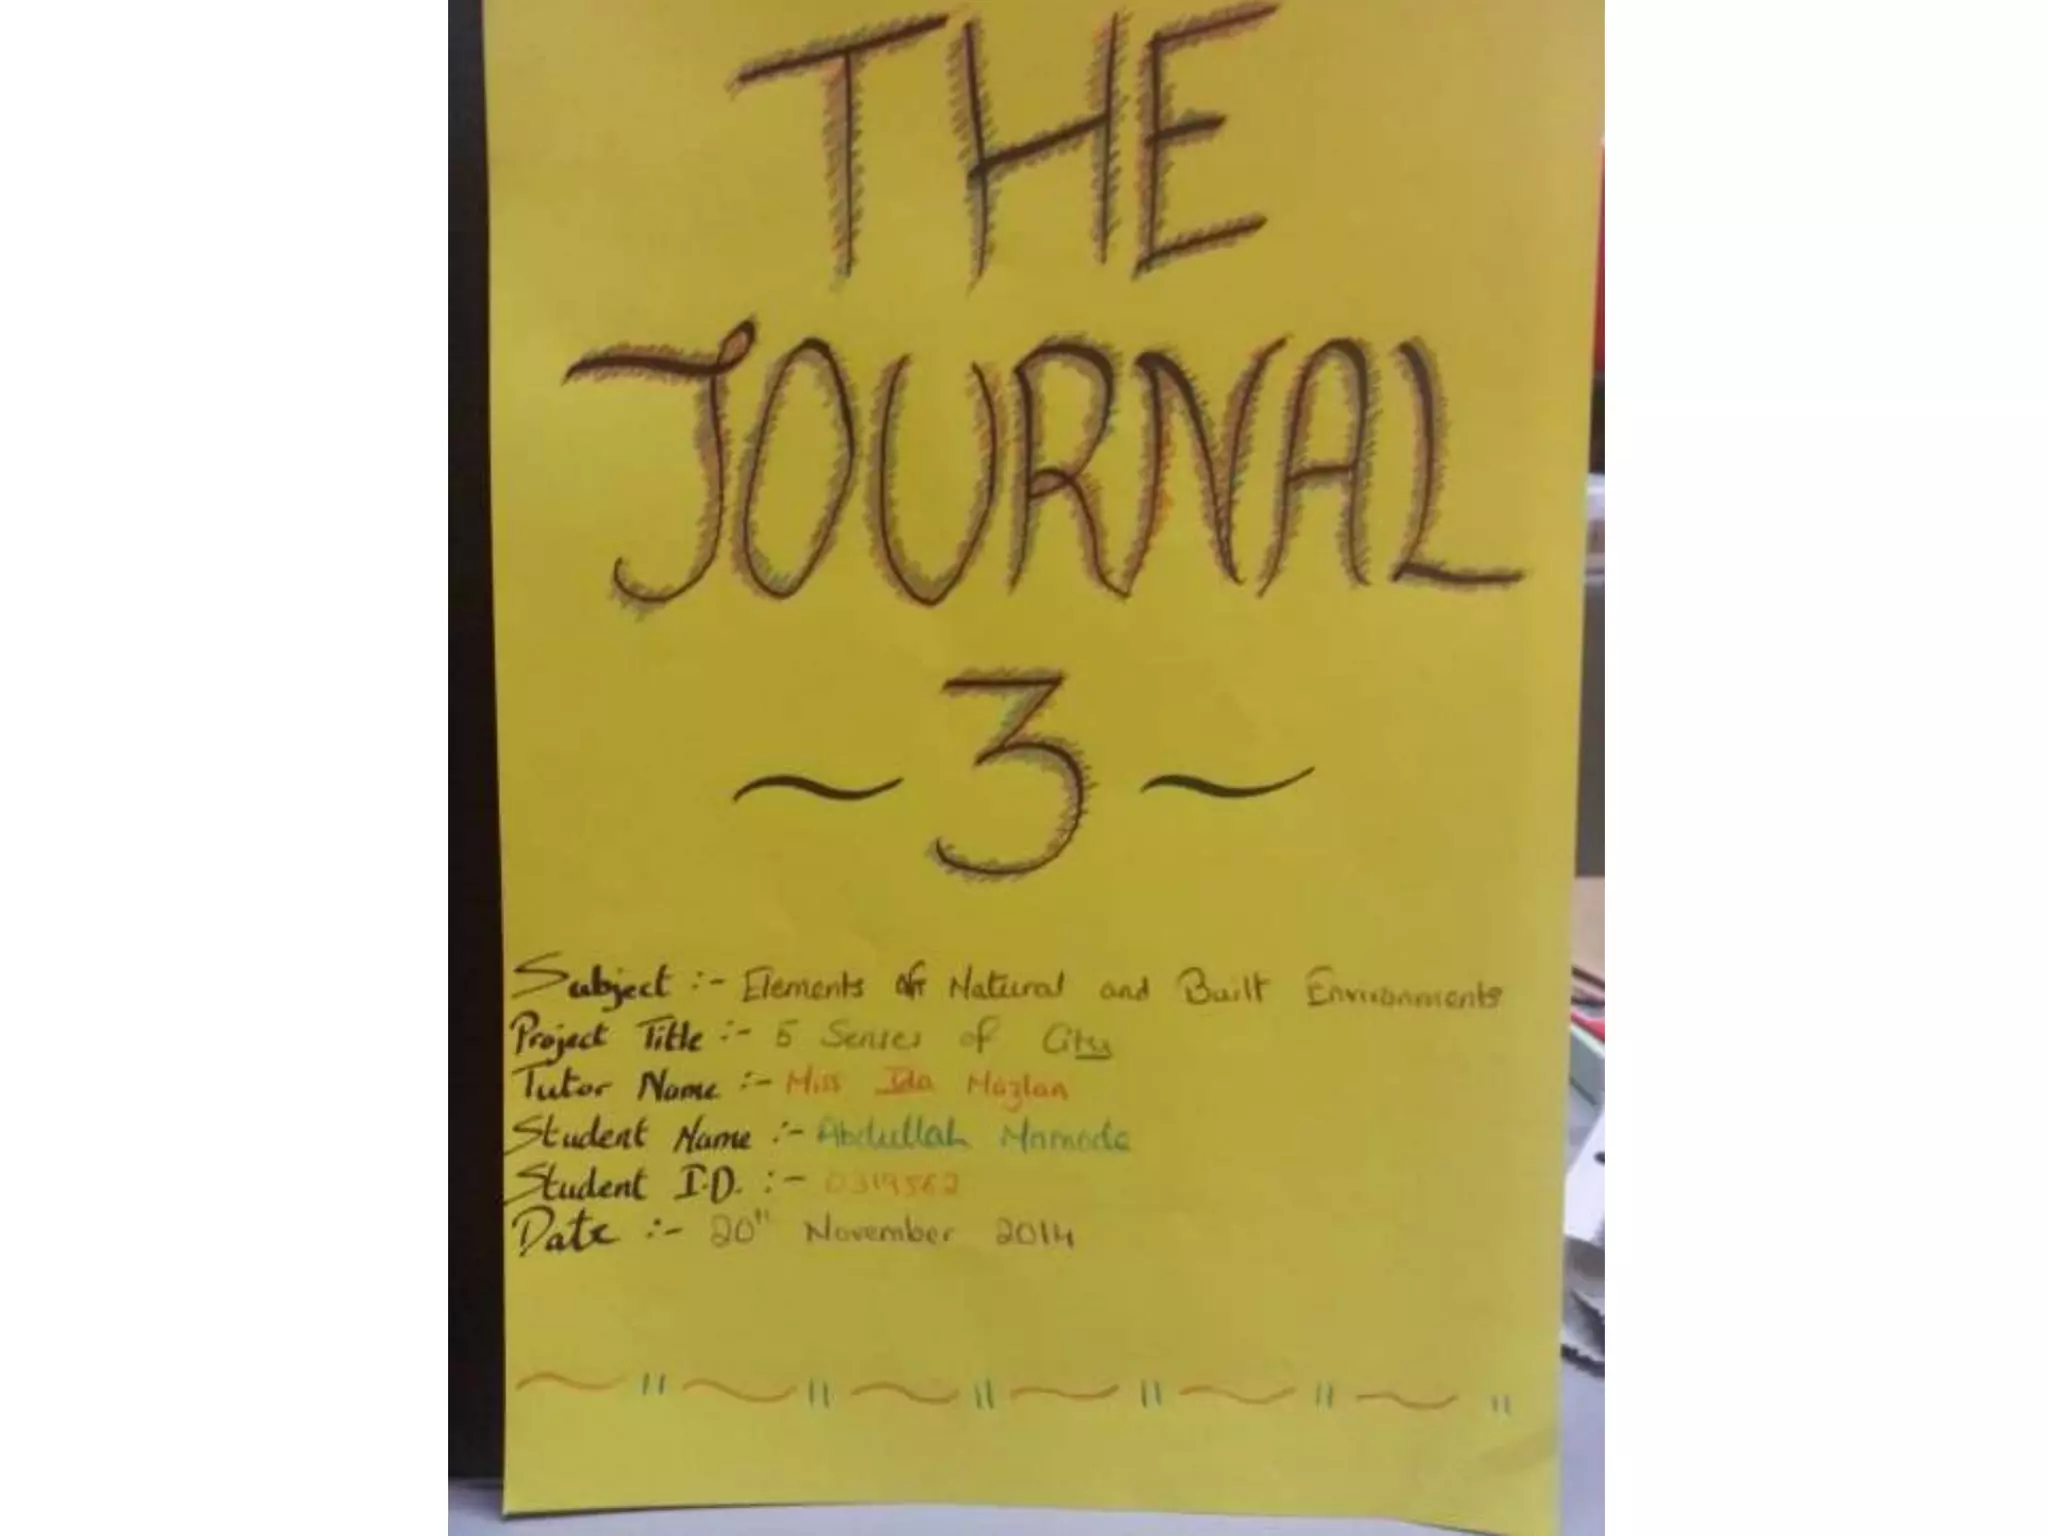 THE
JOURNAL
~ 3 ~
Subject :- Elements of Natural and Built Environments
Project Title :- 5 Senses of City
Tutor Name :- Miss Ida Mazlan
Student Name :- Abdullah Mamode
Student I.D. :- 0319562
Date :- 20" November 2014